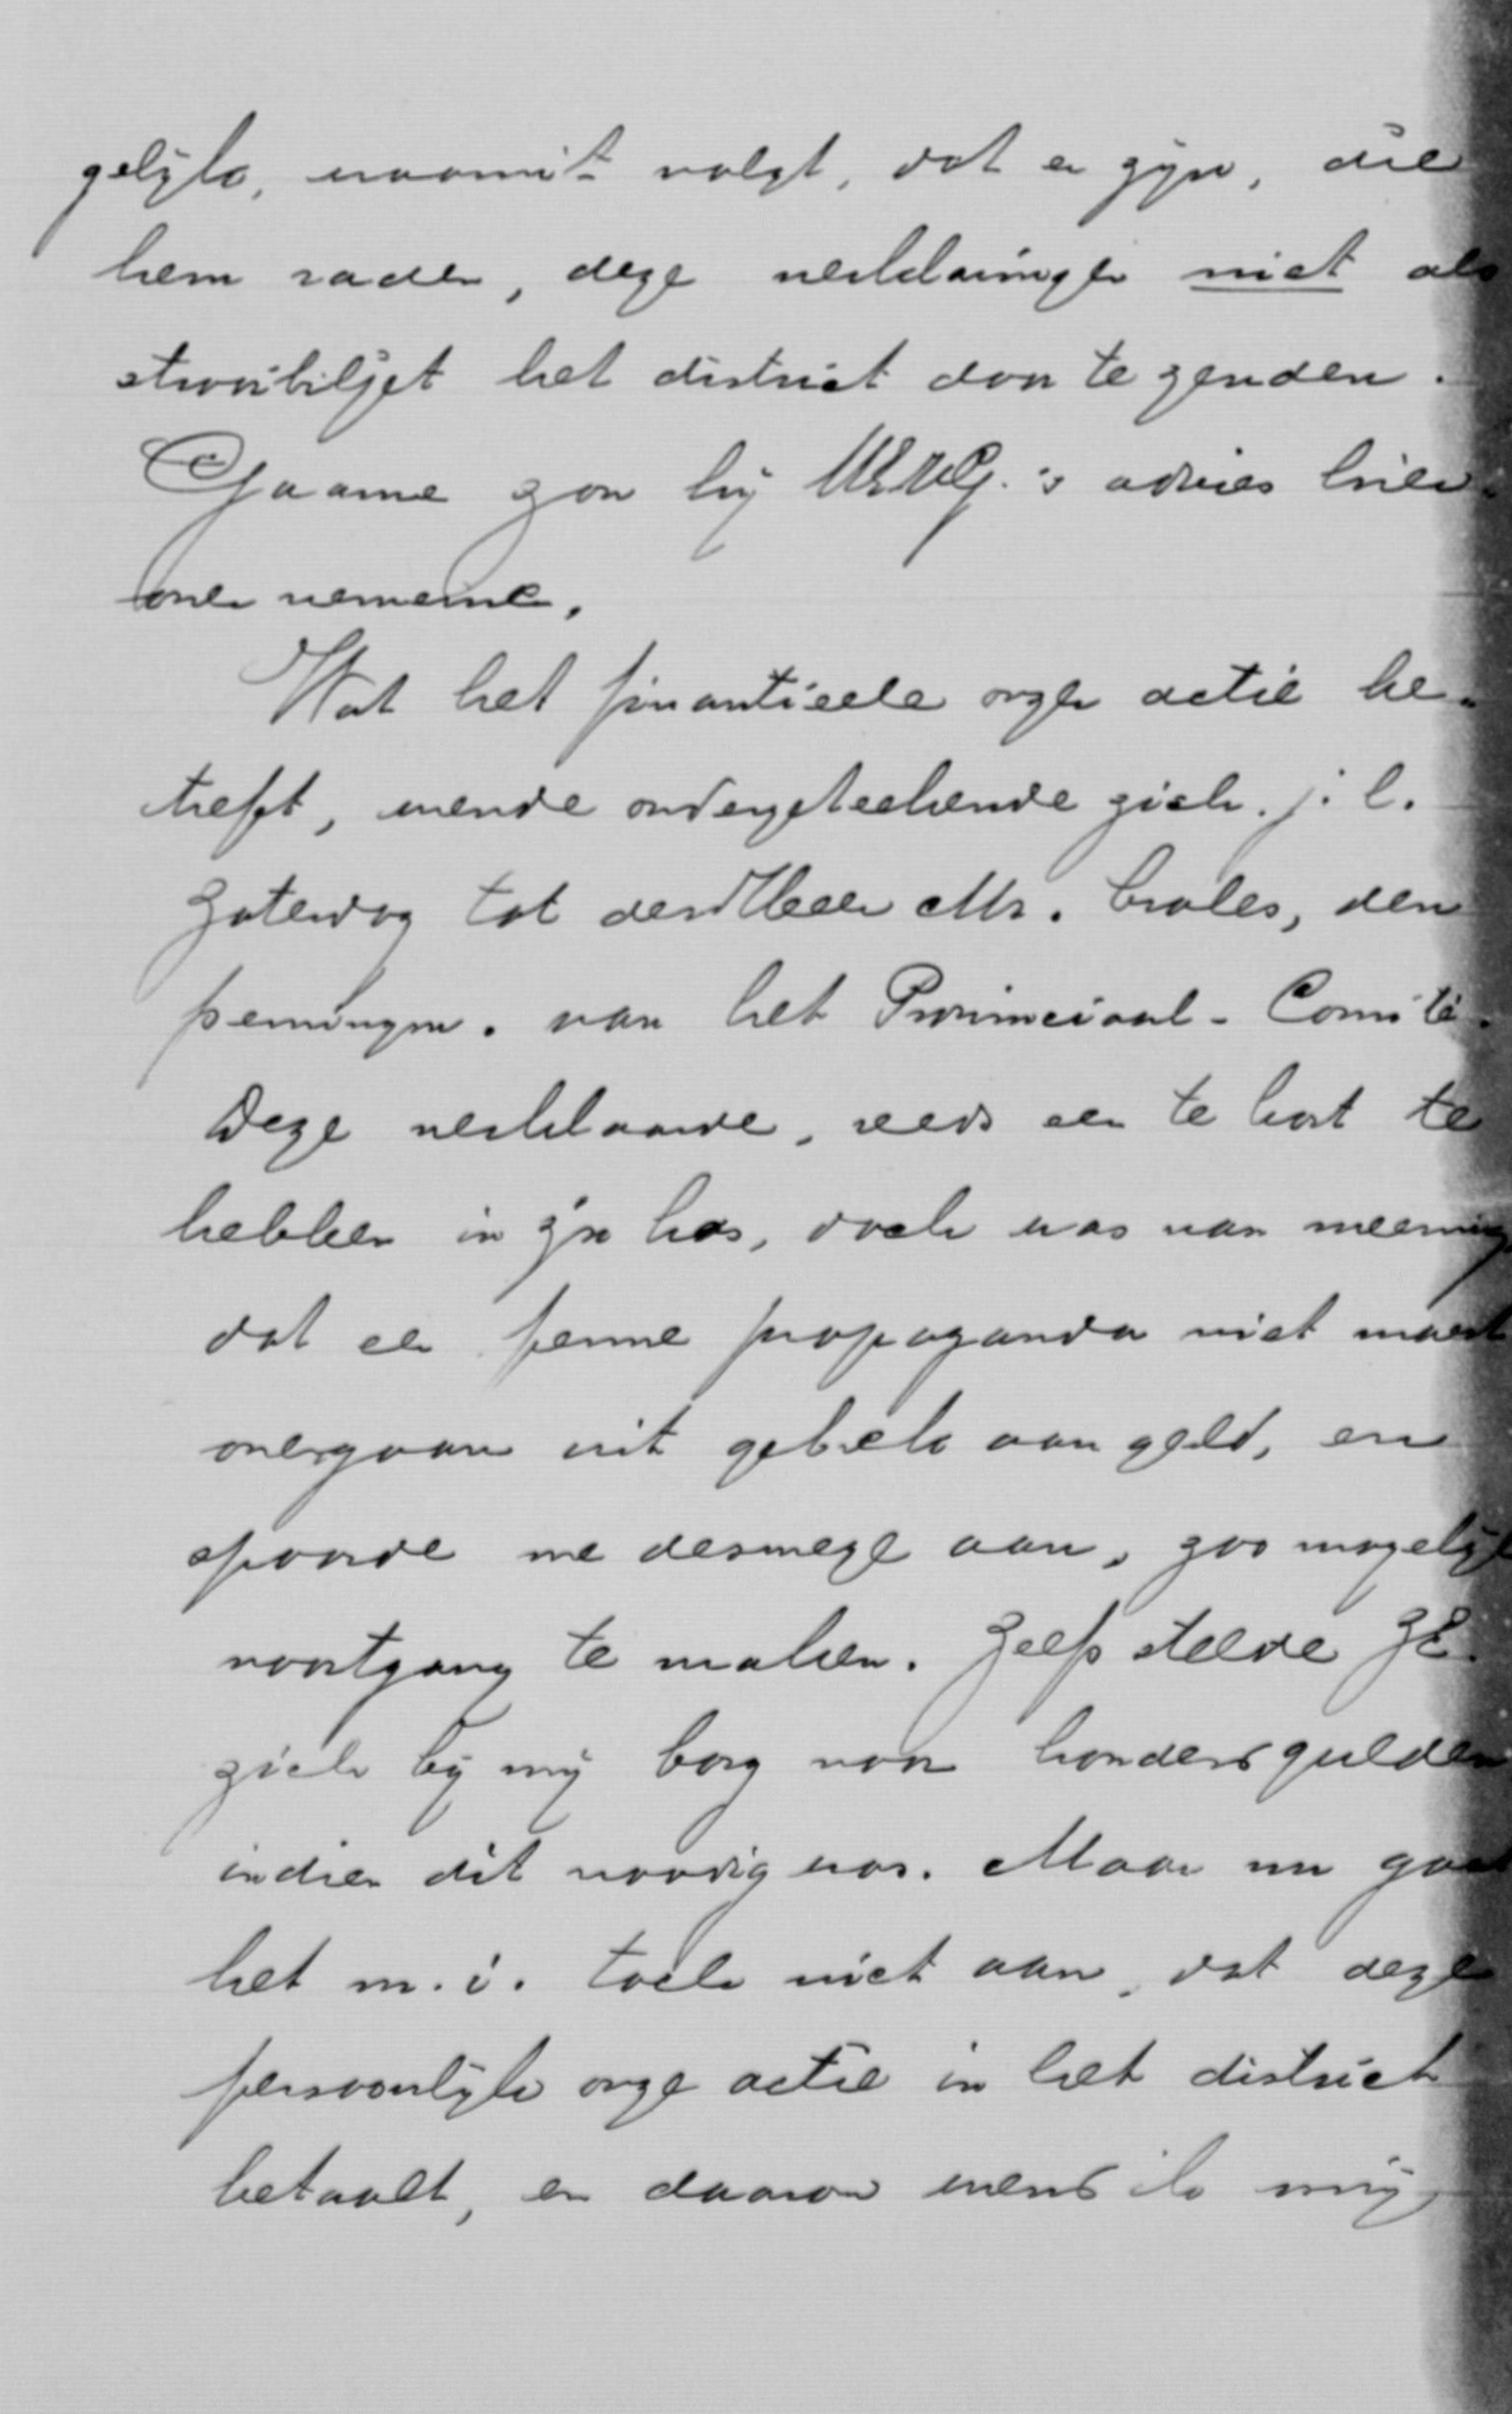 gelijk, waaruit volgt, dat er zijn, die
hem raden, deze verklaringen niet als
strooibiljet het district door te zenden.
Gaarne zou hij UEWelG.'s advies hier-
over vernemen.
Wat het finantieele onzer actie be-
treft, wende ondergeteekende zich j.l.
Zaterdag tot den Heer Mr. , den
penningm. van het Provinciaal-Comité.
Deze verklaarde, reeds een te kort te
hebben in z'n kas, doch was van meening
dat een ferme propaganda niet moest
overgaan uit gebrek aan geld, en
spoorde me deswege aan, zoo mogelijk
voortgang te maken. Zelfs stelde ZE.
zich bij mij borg voor honderd gulden
indien dit noodig was. Maar nu gaat
het m.i. toch niet aan, dat deze
persoonlijk onze actie in het district
betaalt, en daarom wend ik mij